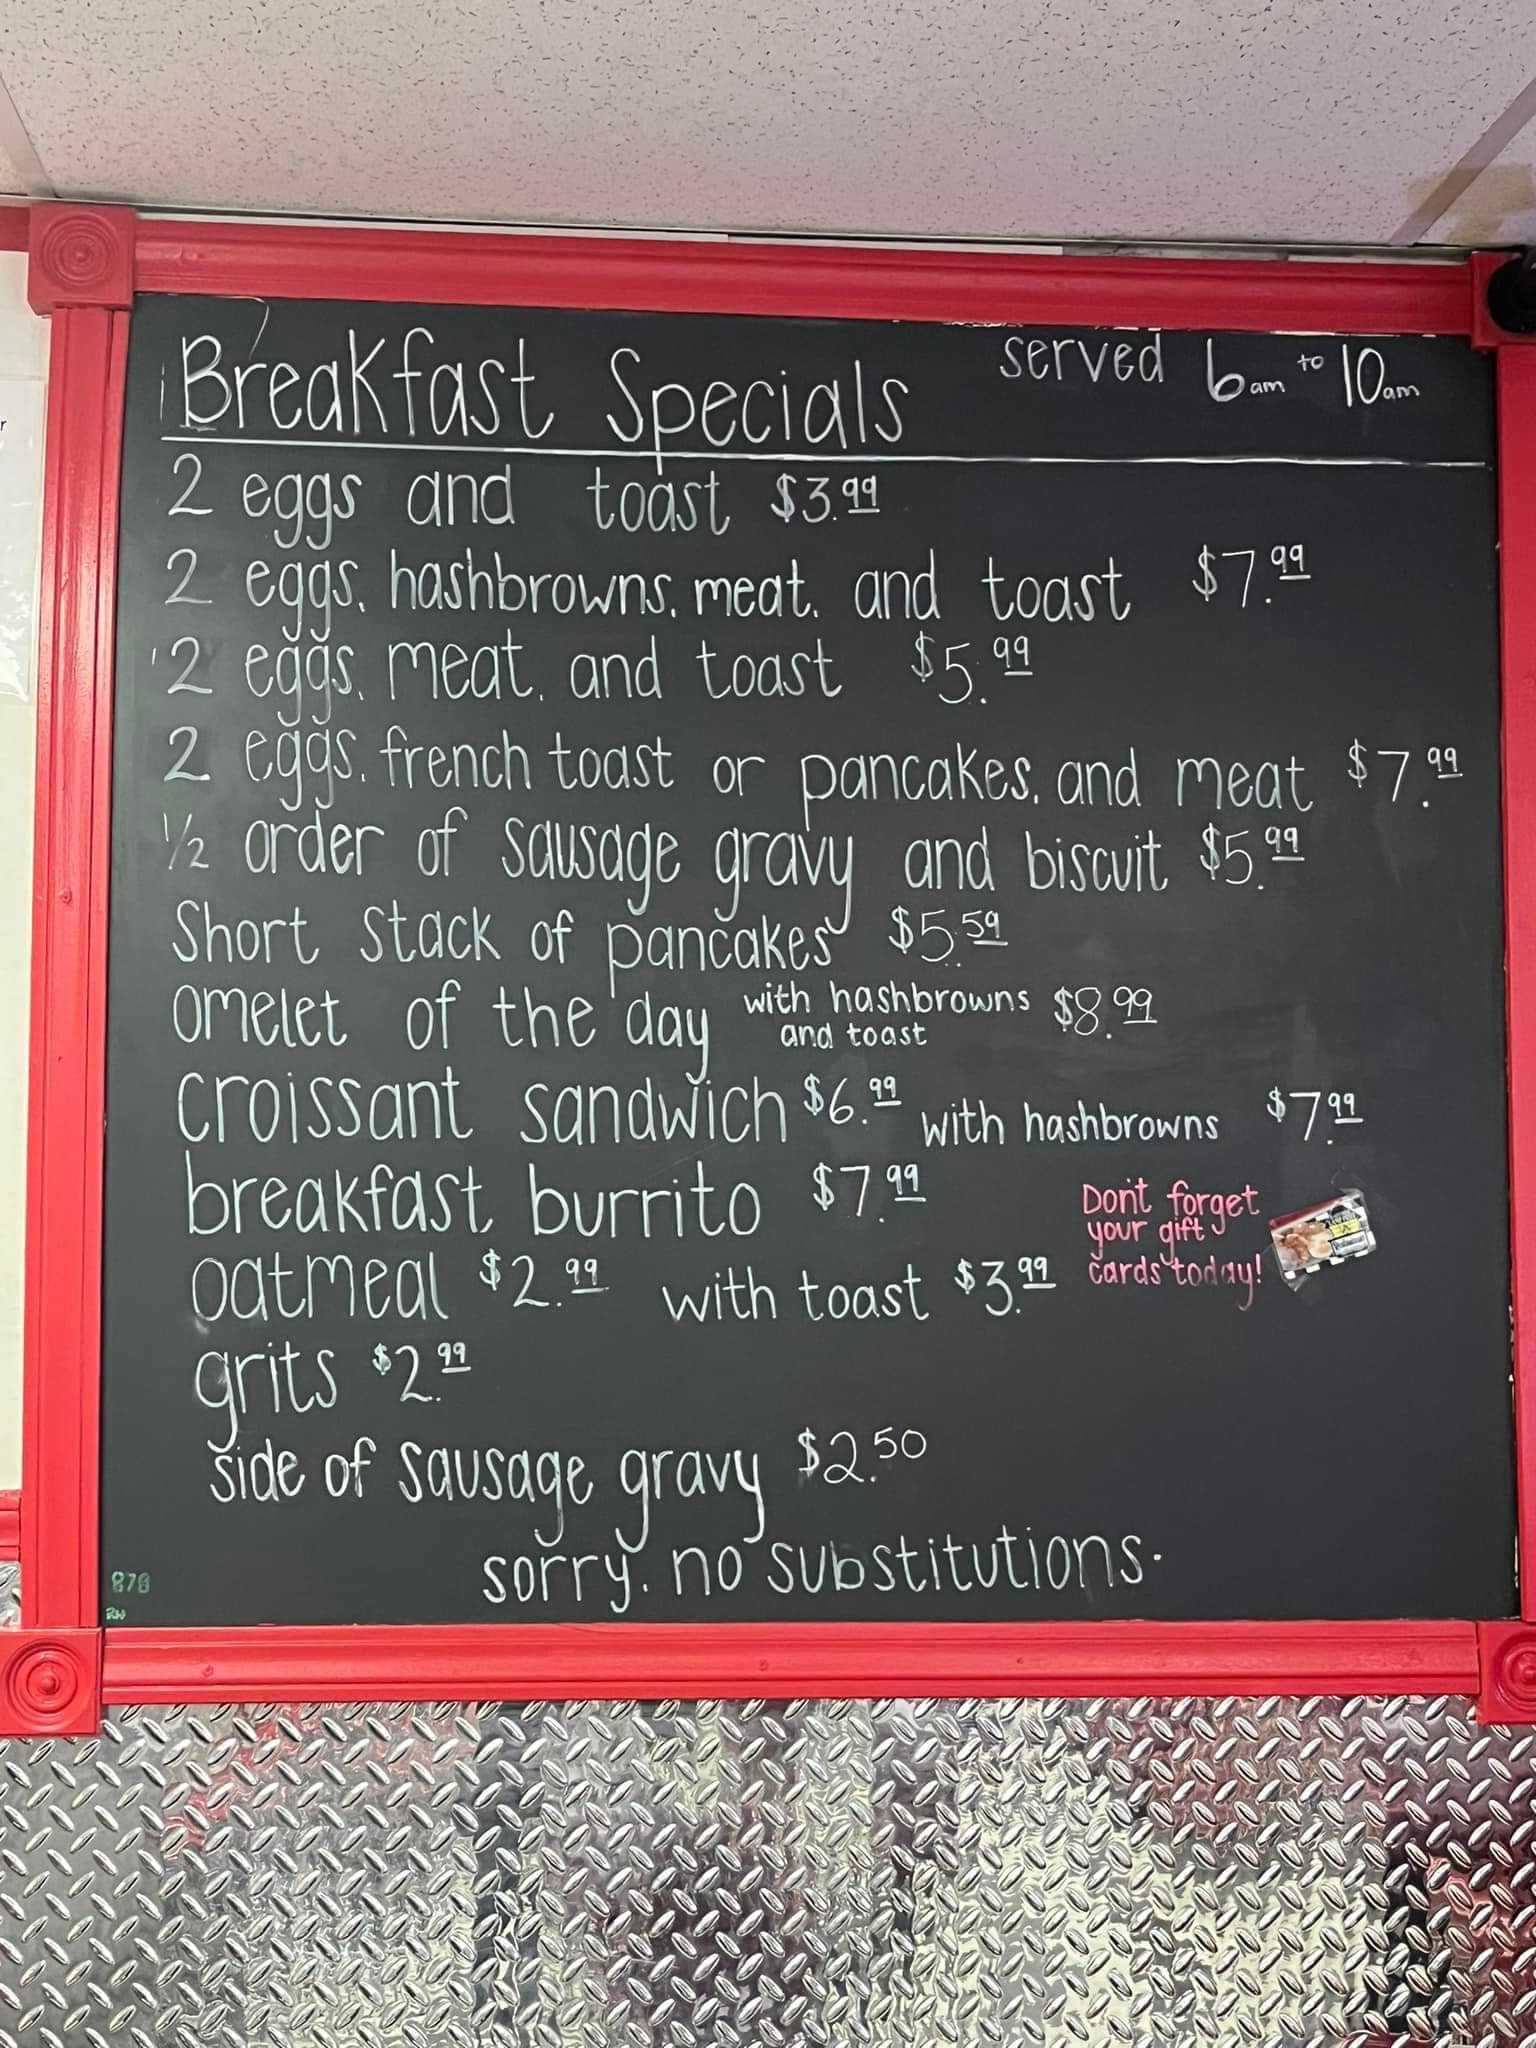 Breakfast Specials served 6am to 10am
2 eggs and toast $3.99
2 eggs, hashbrowns, meat, and toast $7.99
2 eggs, meat, and toast $5.99
2 eggs, french toast or pancakes, and meat $7.99
1/2 order of sausage gravy and biscuit $5.99
Short stack of pancakes $5.59
omelet of the day with hashbrowns and toast $8.99
croissant sandwich $6.99 with hashbrowns $7.99
breakfast burrito $7.99
Don't forget
your gift
cards today!
oatmeal $2.99 with toast $3.99
grits $2.99
side of sausage gravy $2.50
sorry, no substitutions.